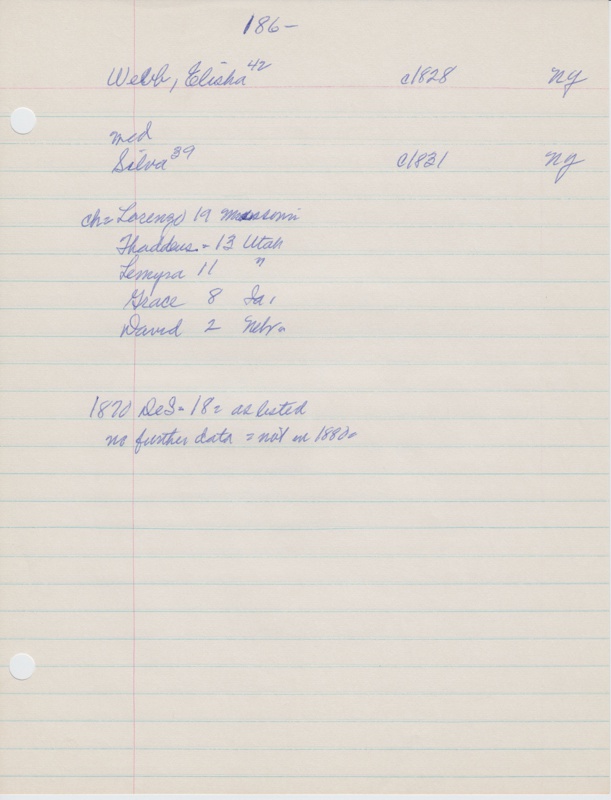 186-
Webb, Elisha 42 c1828 NY
md
Silva 39 c1831 NY
ch= Lorenzo 19 Missouri
Thaddeus - 13 Utah
Lemyra 11 "
Grace 8 Ia.
David 2 Nebr
1870 DeS= 18= as listed
no further data = not in 1880=